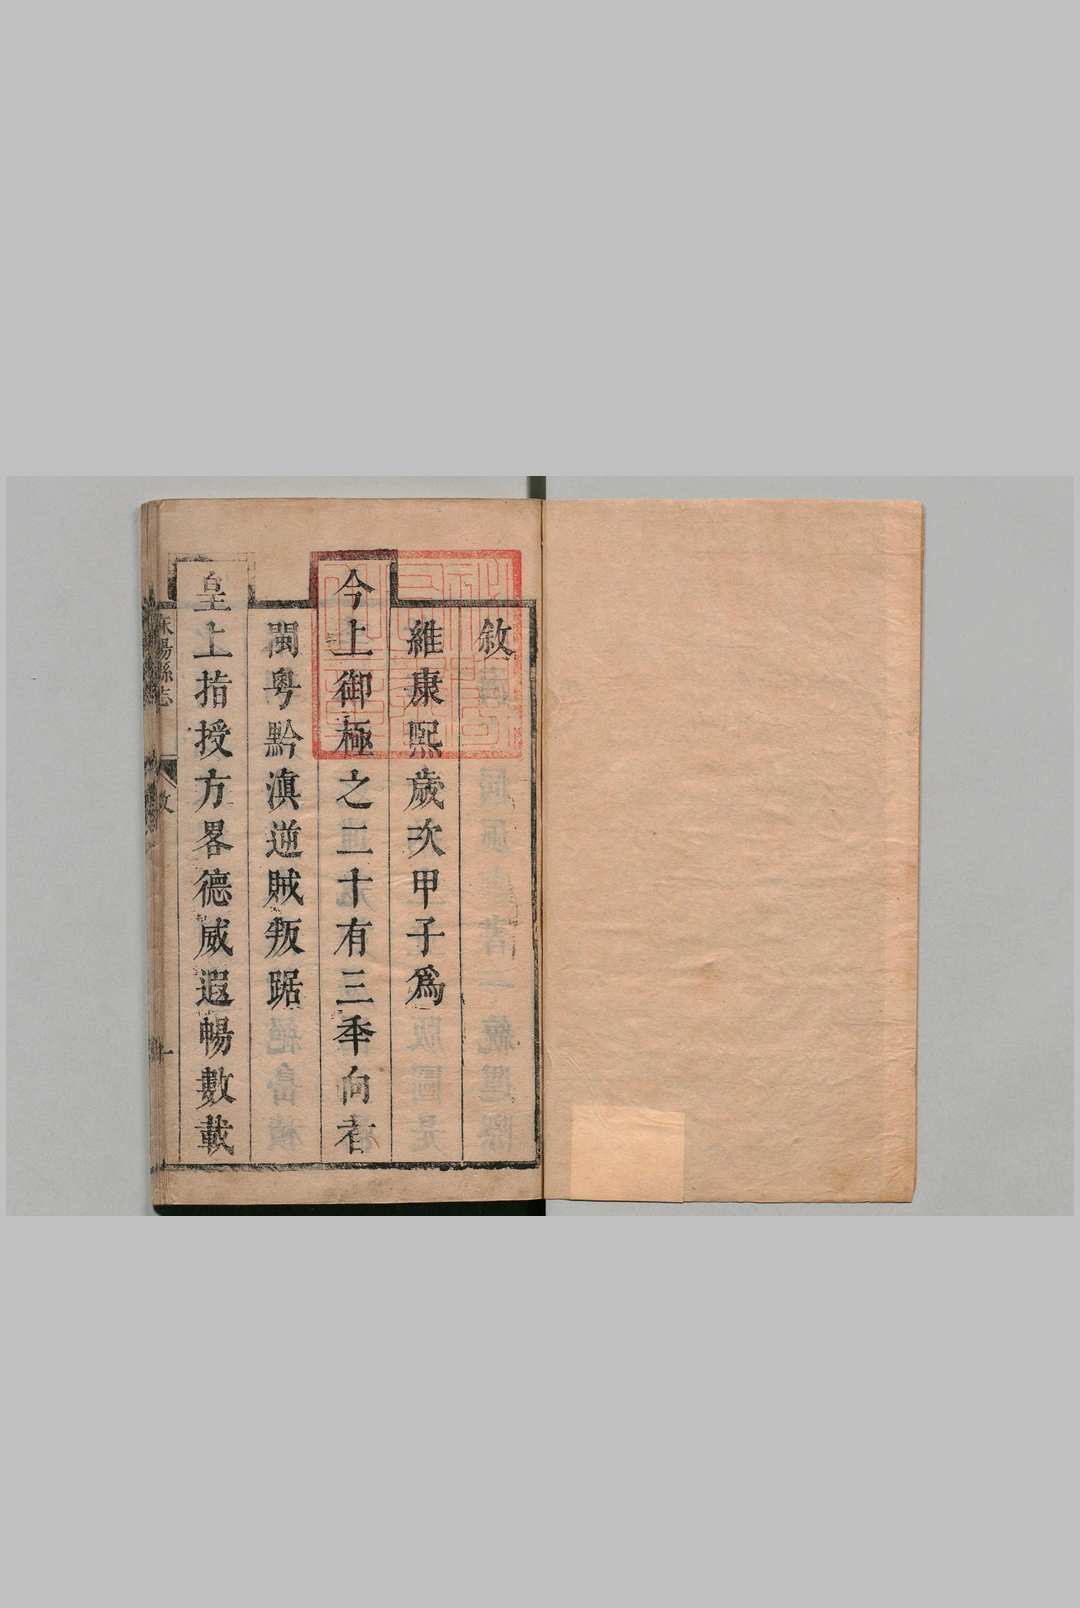 敘
維康熙歲次甲子爲
今上御極之二十有三秊向者
閩粤黔滇逆賊叛踞
皇上指授方畧德威遐暢數載
陽縣志